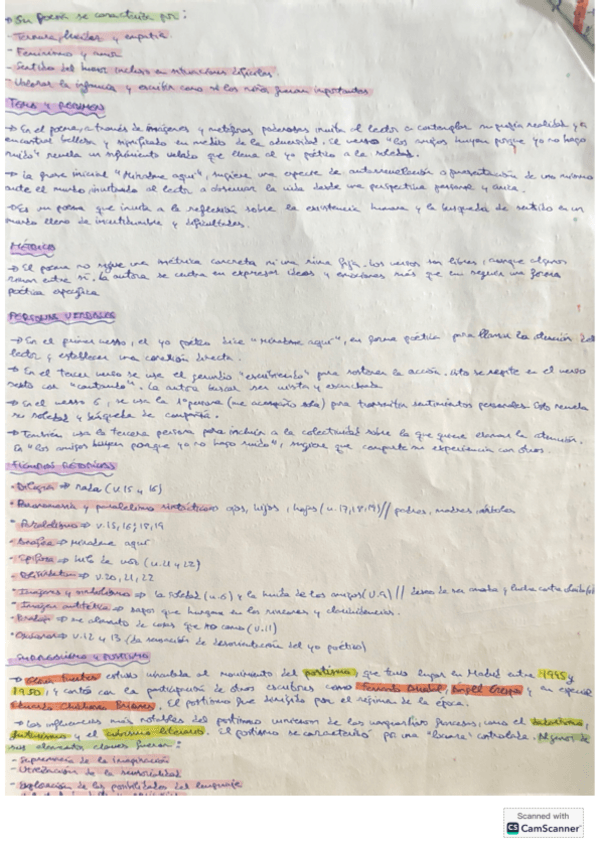 → Su poesía se caracteriza por:
- Ternura, y empatía
- Feminismo y
- Sentido del humor incluso en situaciones difíciles
- Valorar la infancia y escribir como si los niños fueran importantes
TEMA Y RESUMEN
→ En el poema, a través de imágenes y metáforas poderosas invita al lector a contemplar su propia realidad y a
encontrar belleza y significado en medio de la adversidad. El verso "los amigos huyen porque yo no hago
ruido" revela un sufrimiento velado que lleva al yo poético a la soledad.
→ La frase inicial "Miradme aquí", sugiere una especie de autorrevelación o presentación de uno mismo
ante el mundo invitando al lector a observar la vida desde una perspectiva personal y única.
→ Es un poema que invita a la reflexión sobre la existencia humana y la búsqueda de sentido en un
mundo lleno de incertidumbre y dificultades.
MÉTRICA
→ El poema no sigue una métrica concreta ni una rima fija. Los versos son libres, aunque algunos
riman entre sí. La autora se centra en expresar ideas y emociones más que en seguir una forma
poética específica
PERSONAS VERBALES
→ En el primer verso, el yo poético dice "Miradme aquí", en forma poética para llamar la atención del
lector y establecer una conexión directa.
→ En el tercer verso se usa el gerundio "escribiendo" para sostener la acción. Esto se repite en el verso
sexto con "cantando". La autora busca ser vista y escuchada.
→ En el verso 6, se usa la 1ª persona (me acompaño sola) para transmitir sentimientos personales. Esto revela
su soledad y búsqueda de compañía.
→ También usa la tercera persona para incluir a la colectividad sobre la que quiere llamar la atención.
En "los amigos huyen porque yo no hago ruido", sugiere que comparte su experiencia con otros.
FIGURAS RETÓRICAS
• nada (v.15 y 16)
• Paronomasia y paralelismo sintáctico: ojos, hijos, hojas (v. 17,18,19) // padres, madres, árboles
• Paralelismo → v.15,16; 18,19
• → Miradme aquí
• Epífora → hilo de voz (v.21 y 22)
• → v.20, 21, 22
• Imágenes y simbolismo → la soledad (v.6) y la huida de los amigos (v.9) // deseo de ser amada y lucha contra
• Imagen → sapos que hurgan en los rincones y
• → me alimento de cosas que no como (v.11)
• → v.12 y 13 (da sensación de desorientación del yo poético)
SURREALISMO Y POSTISMO
→ Gloria Fuertes estuvo vinculada al movimiento del postismo, que tuvo lugar en Madrid entre 1945 y
1950, y contó con la participación de otros escritores como Fernando Arrabal, Ángel Crespo y en especial
Eduardo Chicharro Briones. El postismo fue dirigido por el régimen de la época.
→ Las influencias más notables del postismo vinieron de las vanguardias francesas, como el dadaísmo,
futurismo y el cubismo literario. El postismo se caracterizó por una "locura" controlada. Algunos de
sus elementos claves fueron:
- Supremacía de la imaginación
- Utilización de la sensorialidad
- Exploración de las posibilidades del lenguaje
Scanned with
CS CamScanner